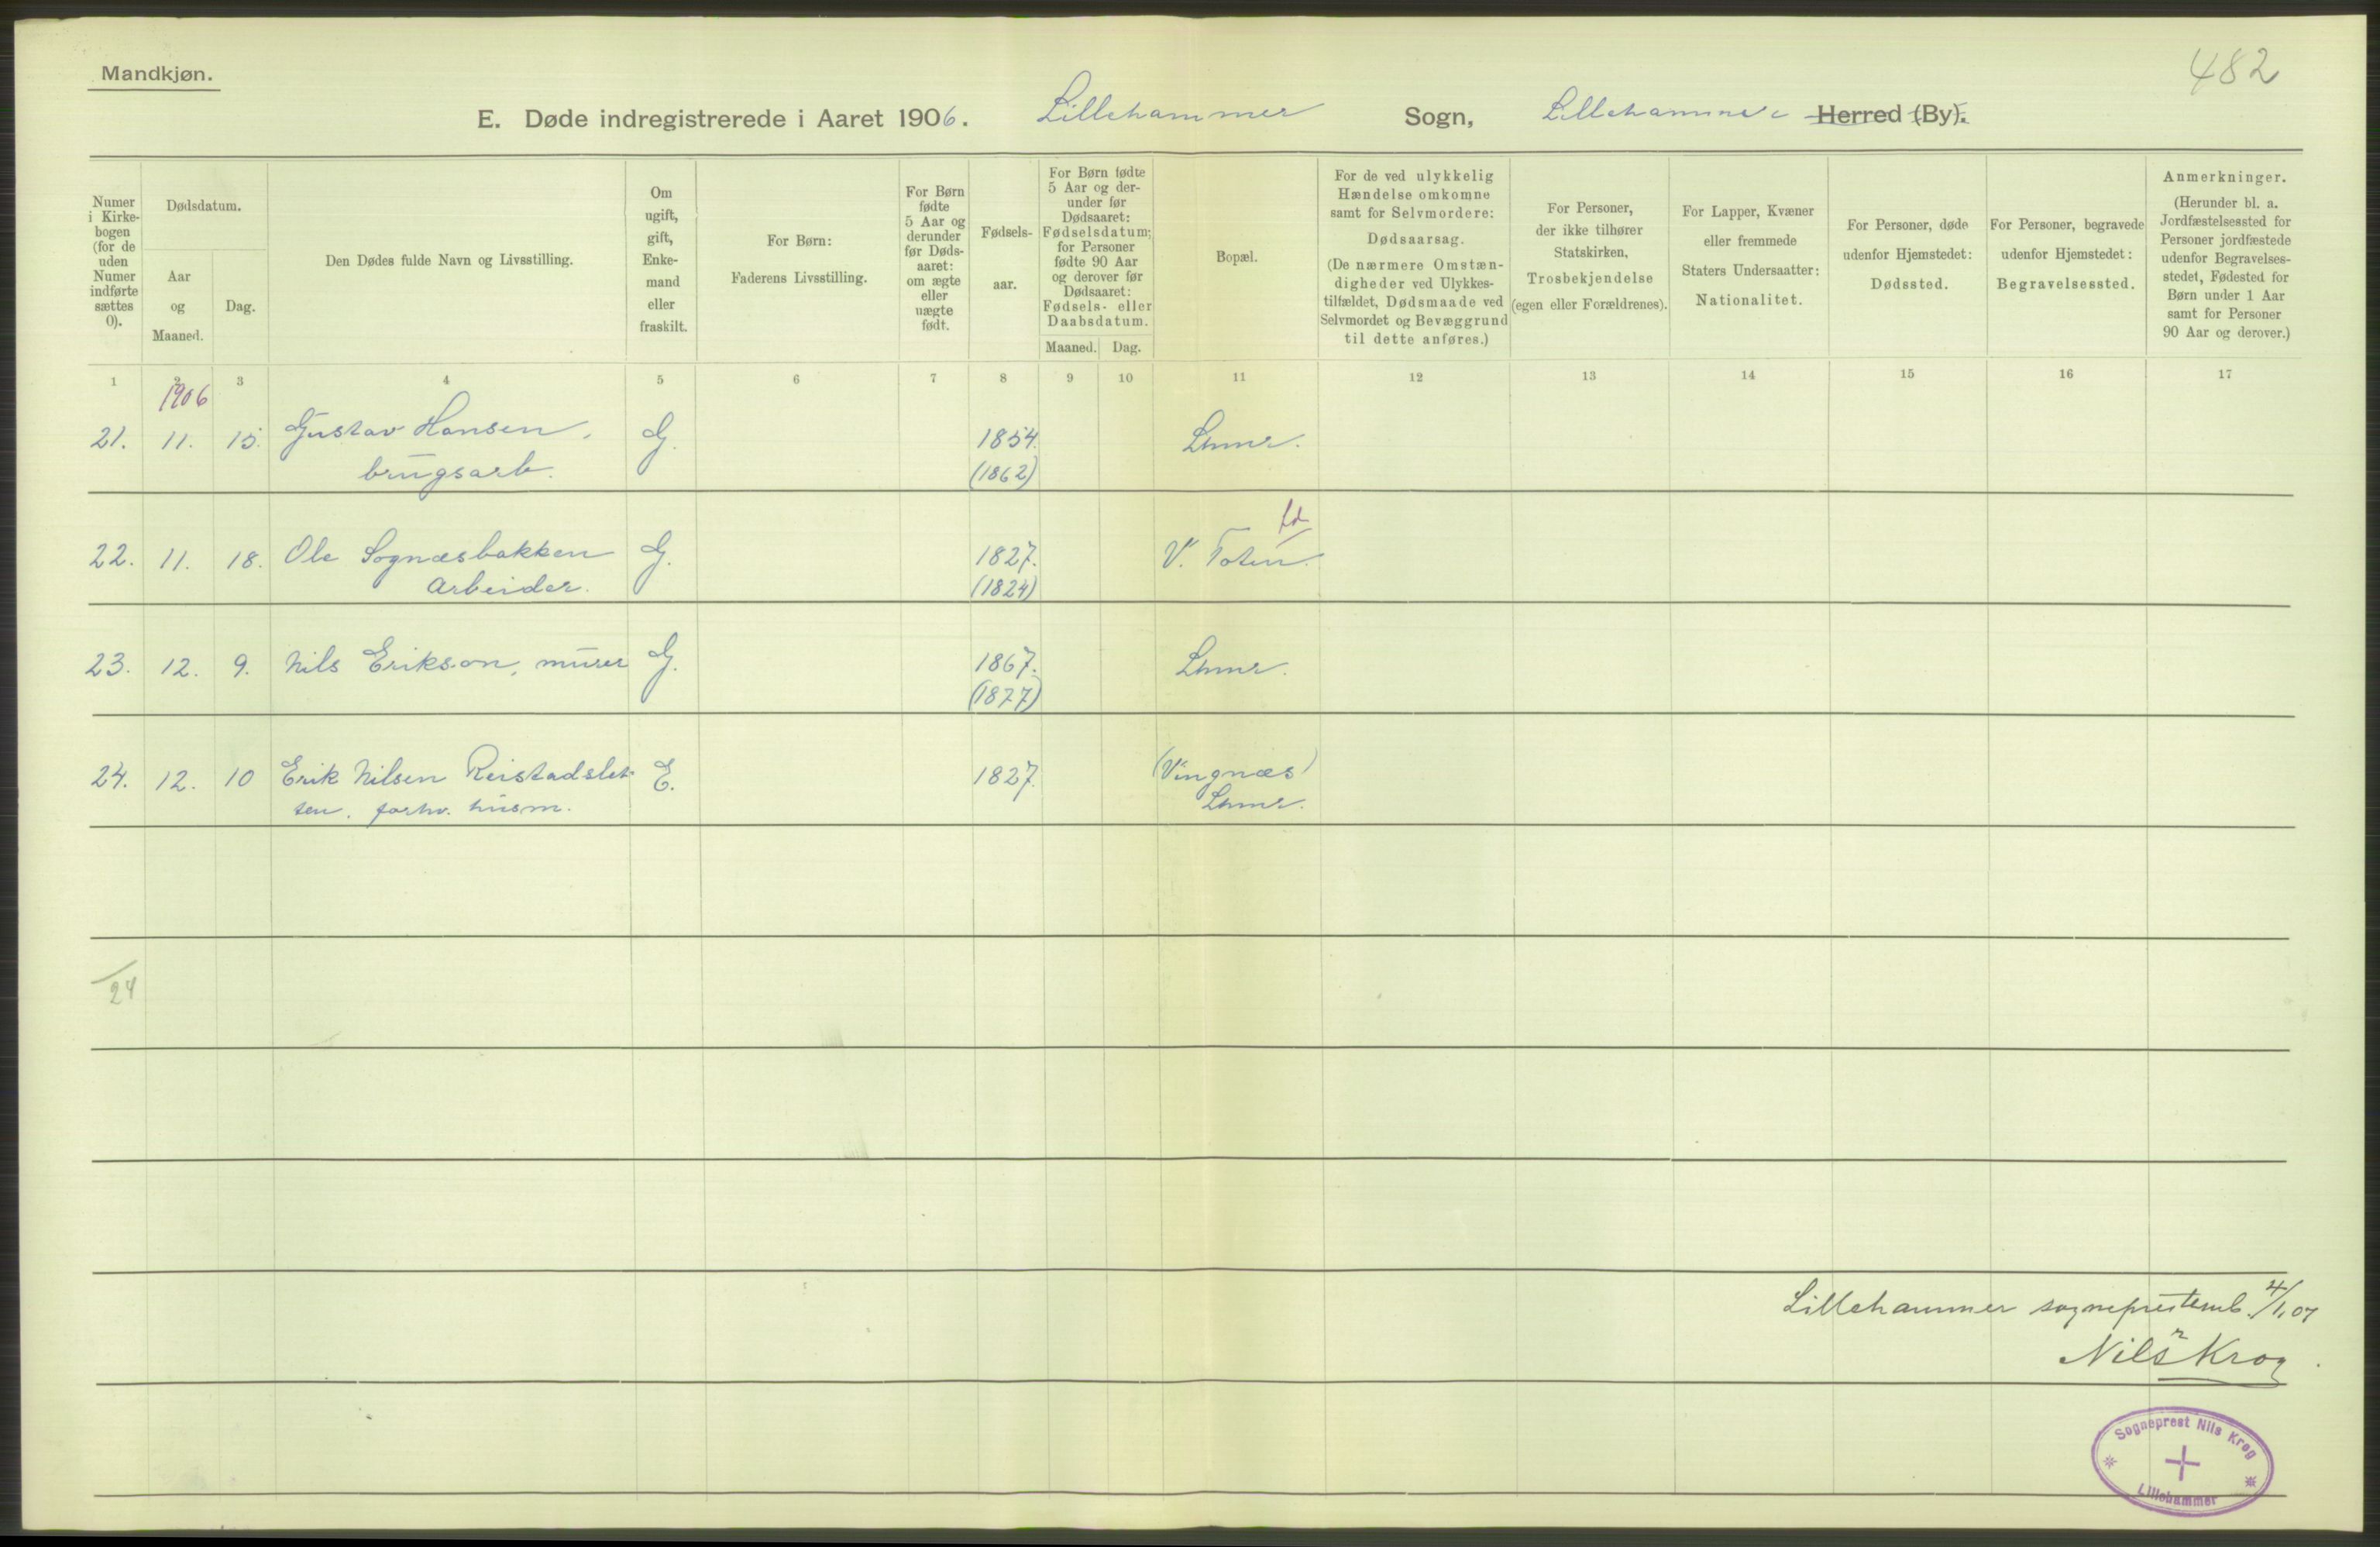 Mandkjøn.
482
E. Døde indregistrerede i Aaret 1906. Lillehammer Sogn, Lillehammer Herred (By).
Numer
i Kirke-
bogen
(for de
uden
Numer
indførte
sættes
0).
Dødsdatum.
Aar
og
Maaned.
Dag.
Den Dødes fulde Navn og Livsstilling.
Om
ugift,
gift,
Enke-
mand
eller
fraskilt.
For Børn:
Faderens Livsstilling.
For Børn
fødte
5 Aar og
derunder
før Døds-
aaret:
om ægte
eller
uægte
født.
Fødsels-
aar.
For Børn fødte
5 Aar og der-
under før
Dødsaaret:
Fødselsdatum;
for Personer
fødte 90 Aar
og derover før
Dødsaaret:
Fødsels- eller
Daabsdatum.
Maaned. Dag.
Bopæl.
For de ved ulykkelig
Hændelse omkomne
samt for Selvmordere:
Dødsaarsag.
(De nærmere Omstæn-
digheder ved Ulykkes-
tilfældet, Dødsmaade ved
Selvmordet og Bevæggrund
til dette anføres.)
For Personer,
der ikke tilhører
Statskirken,
Trosbekjendelse
(egen eller Forældrenes).
For Lapper, Kvæner
eller fremmede
Staters Undersaatter:
Nationalitet.
For Personer, døde
udenfor Hjemstedet:
Dødssted.
For Personer, begravede
udenfor Hjemstedet:
Begravelsessted.
Anmerkninger.
(Herunder bl. a.
Jordfæstelsessted for
Personer jordfæstede
udenfor Begravelses-
stedet, Fødested for
Børn under 1 Aar
samt for Personer
90 Aar og derover.)
1 2 3 4 5 6 7 8 9 10 11 12 13 14 15 16 17
1906
21. 11. 15. Gustav Hansen, G. 1854. Lhmr.
brugsarb. (1862)
ld
22. 11. 18. Ole Sognæsbakken G. 1827. V. Toten.
Arbeider. (1824)
23. 12. 9. Nils Erikson, murer G. 1867. Lhmr.
(1877)
24. 12. 10 Erik Nilsen Reistadslet- E. 1827. (Vingnæs)
ten. forhv. husm. Lhmr.
24
Lillehammer sogneprestemb. 4/1.07
Nils Krog.
Sogneprest Nils Krog
Lillehammer